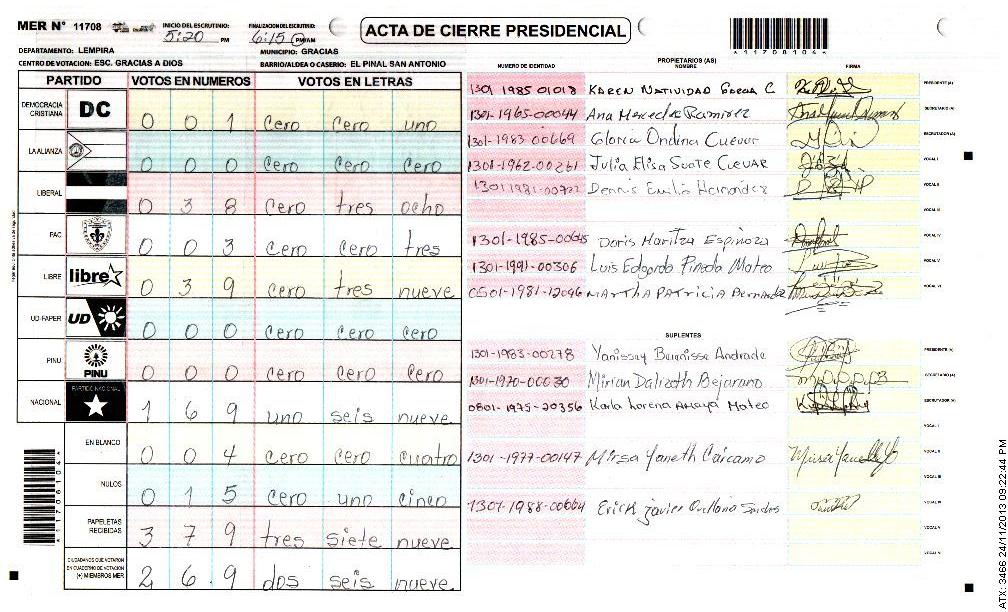 MER N° 11708 INICIO DEL ESCRUTINIO: 5:20 PM FINALIZACION DEL ESCRUTINIO: 6:15 PM/AM
ACTA DE CIERRE PRESIDENCIAL
*11708104*
DEPARTAMENTO: LEMPIRA MUNICIPIO: GRACIAS
CENTRO DE VOTACION: ESC. GRACIAS A DIOS BARRIO/ALDEA O CASERIO: EL PINAL SAN ANTONIO
PARTIDO VOTOS EN NUMEROS VOTOS EN LETRAS
DEMOCRACIA CRISTIANA DC 0 0 1 cero cero uno
LA ALIANZA 0 0 0 cero cero cero
LIBERAL 0 3 8 cero tres ocho
PAC 0 0 3 cero cero tres
LIBRE libre 0 3 9 cero tres nueve
UD-FAPER UD 0 0 0 cero cero cero
PINU PINU 0 0 0 cero cero cero
NACIONAL PARTIDO NACIONAL 1 6 9 uno seis nueve
EN BLANCO 0 0 4 cero cero cuatro
NULOS 0 1 5 cero uno cinco
PAPELETAS RECIBIDAS 3 7 9 tres siete nueve
CIUDADANOS QUE VOTARON EN CUADERNO DE VOTACION (+) MIEMBROS MER 2 6 9 dos seis nueve
*11708104*
PROPIETARIOS (AS)
NUMERO DE IDENTIDAD NOMBRE FIRMA
1301 1985 01018 KAREN NATIVIDAD C PRESIDENTE (A)
1301-1965-00044 Ana Mercedes Ramirez SECRETARIO (A)
1301-1983-00669 Gloria Ondina Cuevar ESCRUTADOR (A)
1301-1962-00261 Julia Elisa CUEVAR VOCAL I
1301 1981-00722 Dennis Emilio Hernandez VOCAL II
VOCAL III
1301-1985-00645 Doris Maritza Espinoza VOCAL IV
1301-1991-00306 Luis Edgardo Pineda Mateo VOCAL V
0501-1981-12096 MARTHA PATRICIA VOCAL VI
SUPLENTES
1301-1983-00278 Andrade PRESIDENTE (A)
1301-1970-00030 Mirian Dalizeth Bejarano SECRETARIO (A)
0801-1975-20356 Karla Lorena AMAYA Mateo ESCRUTADOR (A)
VOCAL I
1301-1977-00147 Mirsa Yaneth Cárcamo VOCAL II
VOCAL III
1301-1988-00664 Erick javier Orellana VOCAL IV
VOCAL V
VOCAL VI
ATX: 3466 24/11/2013 09:22:44 PM